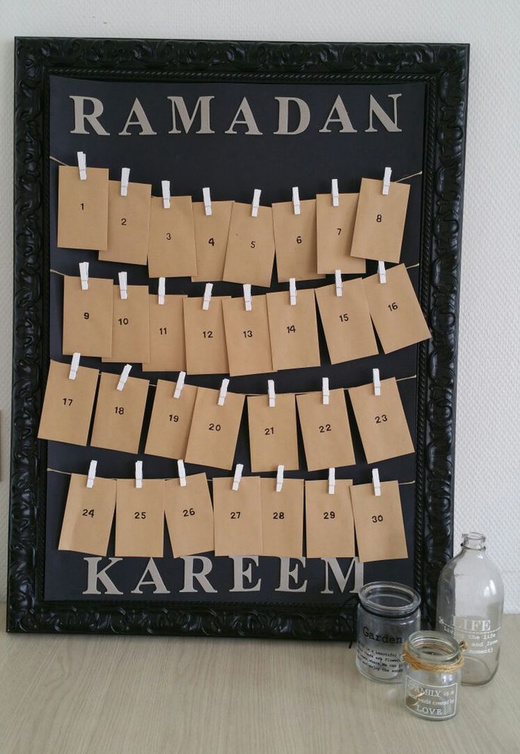 RAMADAN
1 2 3 4 5 6 7 8
9 10 11 12 13 14 15 16
17 18 19 20 21 22 23
24 25 26 27 28 29 30
KAREEM
LIFE
the life
Garden
FAMILY is a
LOVE